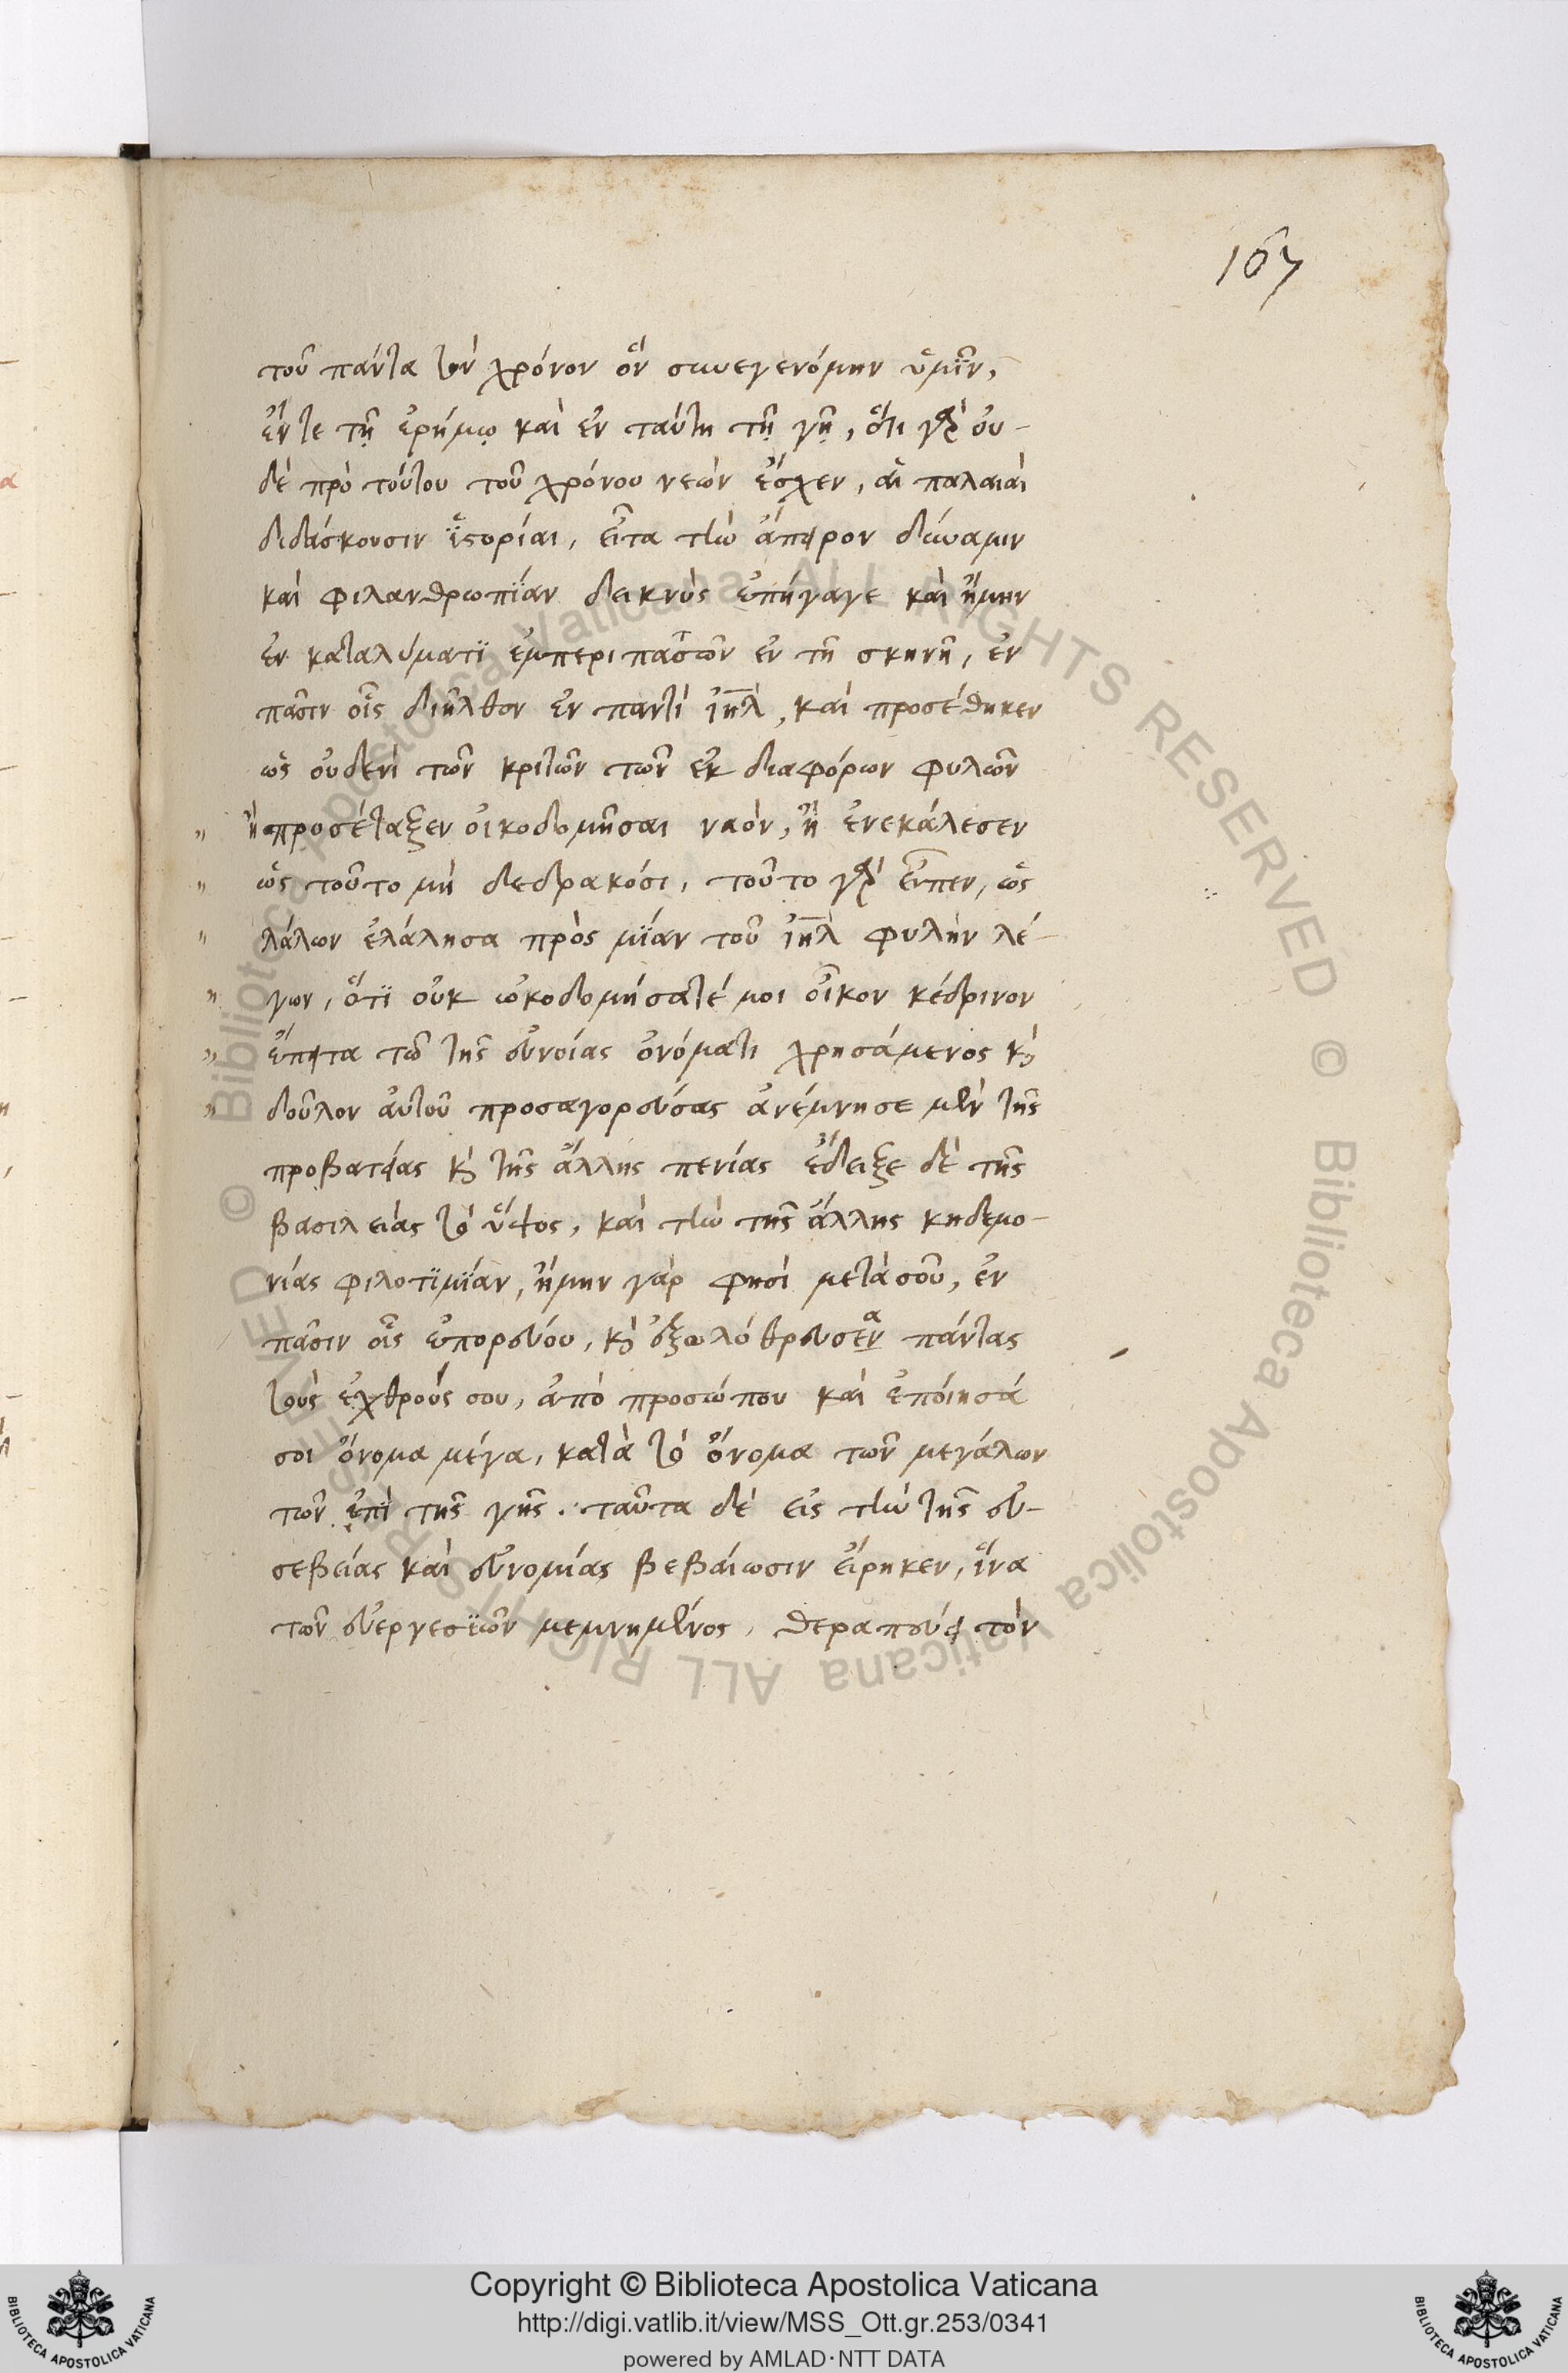 167
τοῦ πάντα τὸν χρόνον ὃν συνεγενόμην ὑμῖν,
ἔν τε τῇ ἐρήμῳ καὶ ἐν ταύτῃ τῇ γῇ, ὅτι γὰρ οὐ-
δὲ πρὸ τούτου τοῦ χρόνου νεὼν ἔσχεν, αἱ παλαιαὶ
διδάσκουσιν ἱστορίαι, εἶτα τὴν ἄπειρον δύναμιν
καὶ φιλανθρωπίαν δεικνὺς ἐπήγαγε καὶ ἤμην
ἐν καταλύματι ἐμπεριπατῶν ἐν τῇ σκηνῇ, ἐν
πᾶσιν οἷς διῆλθον ἐν παντὶ ἰηλ, καὶ προσέθηκεν
ὡς οὐδενὶ τῶν κριτῶν τῶν ἐκ διαφόρων φυλῶν
" ἢ προσέταξεν οἰκοδομῆσαι ναὸν, ἢ ἐνεκάλεσεν
" ὡς τοῦτο μὴ δεδρακόσι, τοῦτο γὰρ εἶπεν, ὡς
" λάλων ἐλάλησα πρὸς μίαν τοῦ ἰηλ φυλὴν λέ-
" γων, ὅτι οὐκ ὠκοδομήσατέ μοι οἶκον κέδρινον
" ἔπειτα τῶ τῆς εὐνοίας ὀνόματι χρησάμενος κὶ
" δοῦλον αὐτοῦ προσαγορεύσας ἀνέμνησε μὲν τῆς
προβατείας κὶ τῆς ἄλλης πενίας ἔδειξε δὲ τῆς
βασιλείας τὸ ὕψος, καὶ τὴν τῆς ἄλλης κηδεμο-
νίας φιλοτιμίαν, ἤμην γάρ φησὶ μετὰ σοῦ, ἐν
πᾶσιν οἷς ἐπορεύου, κὶ ἐξωλόθρευσεν α πάντας
τοὺς ἐχθρούς σου, ἀπὸ προσώπου καὶ ἐποίησά
σοι ὄνομα μέγα, κατὰ τὸ ὄνομα τῶν μεγάλων
τῶν ἐπὶ τῆς γῆς. ταῦτα δὲ εἰς τὴν τῆς εὐ-
σεβείας καὶ εὐνομίας βεβαίωσιν εἴρηκεν, ἵνα
τῶν εὐεργεσιῶν μεμνημένος, θεραπεύει τὸν
Copyright © Biblioteca Apostolica Vaticana
http://digi.vatlib.it/view/MSS_Ott.gr.253/0341
powered by AMLAD·NTT DATA